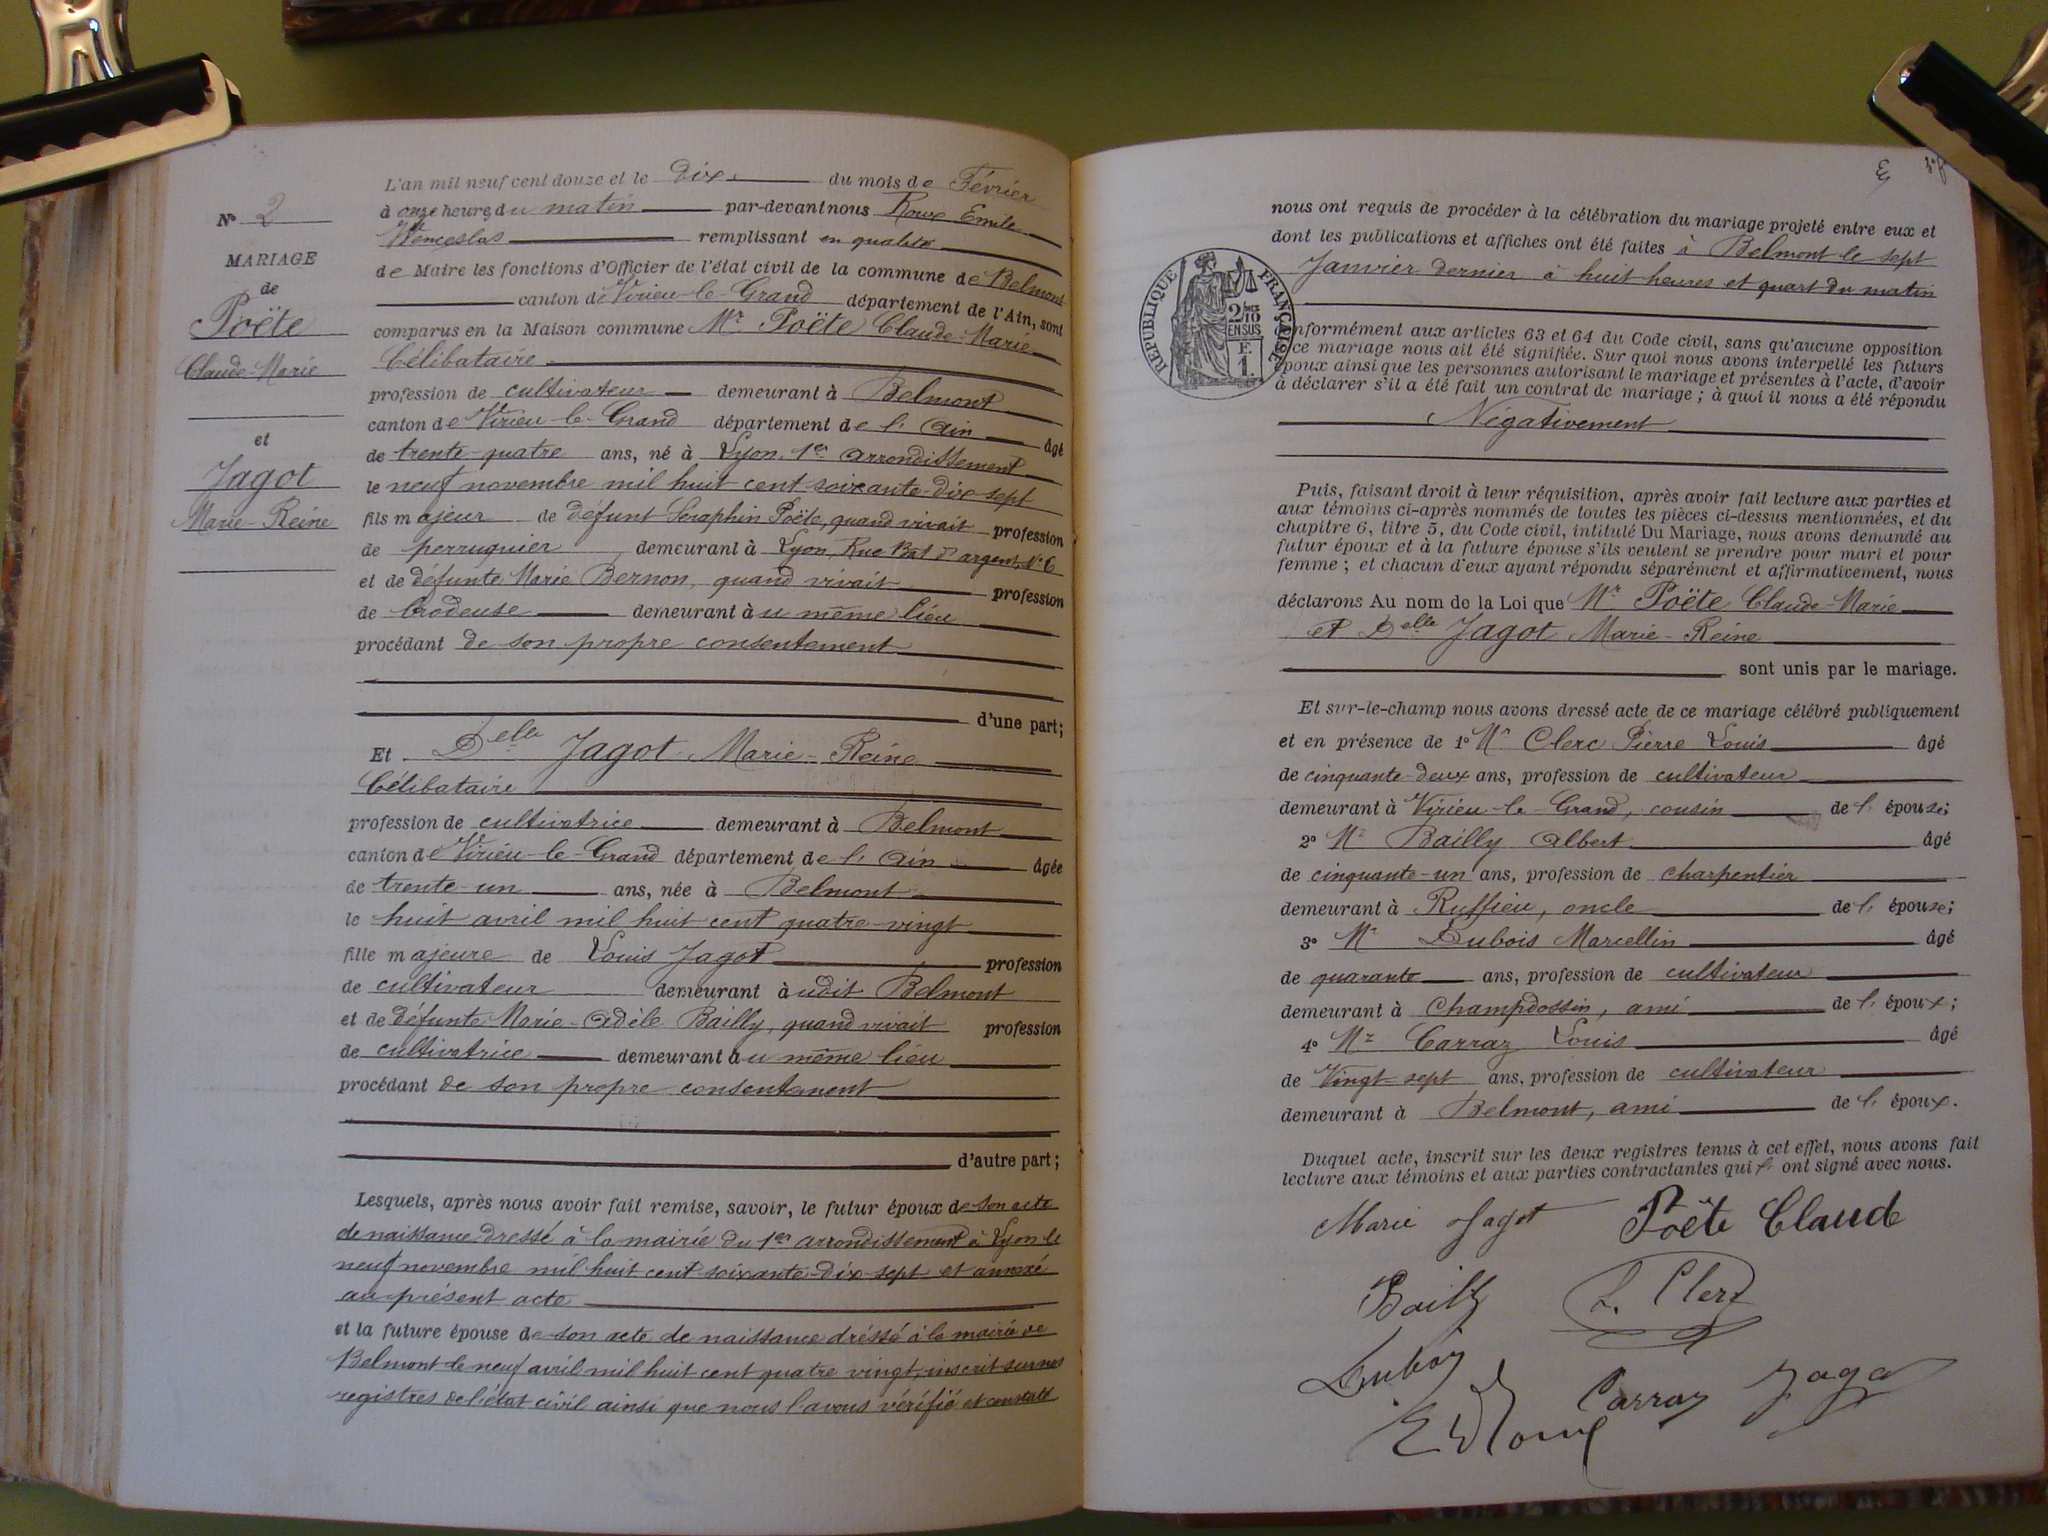 N° 2
MARIAGE
de
Poëte
Claude-Marie
et
Jagot
Marie-Reine
L'an mil neuf cent douze et le dix du mois de Février
à onze heures du matin par-devant nous Roux Emile
Wenceslas remplissant en qualité
de Maire les fonctions d'Officier de l'état civil de la commune de Belmont
canton de Virieu-le-Grand département de l'Ain, sont
comparus en la Maison commune Mr Poëte Claude-Marie
Célibataire
profession de cultivateur demeurant à Belmont
canton de Virieu-le-Grand département de l'Ain âgé
de trente-quatre ans, né à Lyon, 1er arrondissement
le neuf novembre mil huit cent soixante-dix-sept
fils majeur de défunt Seraphin Poëte, quand vivait profession
de perruquier demeurant à Lyon, Rue Bat d'argent, N° 6
et de défunte Marie Bernon, quand vivait profession
de brodeuse demeurant à u même lieu
procédant de son propre consentement
d'une part;
Et Delle Jagot Marie-Reine
Célibataire
profession de cultivatrice demeurant à Belmont
canton de Virieu-le-Grand département de l'Ain âgée
de trente-un ans, née à Belmont
le huit avril mil huit cent quatre-vingt
fille majeure de Louis Jagot profession
de cultivateur demeurant à udit Belmont
et de défunte Marie-Adèle Bailly, quand vivait profession
de cultivatrice demeurant à u même lieu
procédant de son propre consentement
d'autre part;
Lesquels, après nous avoir fait remise, savoir, le futur époux de son acte
de naissance dressé à la mairie du 1er arrondissement à Lyon le
neuf novembre mil huit cent soixante-dix-sept et annexé
au présent acte
et la future épouse de son acte de naissance dréssé à la mairie de
Belmont le neuf avril mil huit cent quatre vingt, inscrit sur nos
registres de l'état civil ainsi que nous l'avons vérifié et constaté
nous ont requis de procéder à la célébration du mariage projeté entre eux et
dont les publications et affiches ont été faites à Belmont le sept
Janvier dernier à huit heures et quart du matin
RÉPUBLIQUE FRANÇAISE
2/10
EN SUS
E.
1.
conformément aux articles 63 et 64 du Code civil, sans qu'aucune opposition
ce mariage nous ait été signifiée. Sur quoi nous avons interpellé les futurs
époux ainsi que les personnes autorisant le mariage et présentes à l'acte, d'avoir
à déclarer s'il a été fait un contrat de mariage; à quoi il nous a été répondu
Négativement
Puis, faisant droit à leur réquisition, après avoir fait lecture aux parties et
aux témoins ci-après nommés de toutes les pièces ci-dessus mentionnées, et du
chapitre 6, titre 5, du Code civil, intitulé Du Mariage, nous avons demandé au
futur époux et à la future épouse s'ils veulent se prendre pour mari et pour
femme; et chacun d'eux ayant répondu séparément et affirmativement, nous
déclarons Au nom de la Loi que Mr Poëte Claude-Marie
et Delle Jagot Marie-Reine
sont unis par le mariage.
Et sur-le-champ nous avons dressé acte de ce mariage célébré publiquement
et en présence de 1° Mr Clerc Pierre Louis âgé
de cinquante-deux ans, profession de cultivateur
demeurant à Virieu-le-Grand, cousin de l'épouse;
2° Mr Bailly Albert âgé
de cinquante-un ans, profession de charpentier
demeurant à Ruffieu, oncle de l'épouse;
3° Mr Dubois Marcellin âgé
de quarante ans, profession de cultivateur
demeurant à Champdossin, ami de l'époux;
4° Mr Carraz Louis âgé
de Vingt-sept ans, profession de cultivateur
demeurant à Belmont, ami de l'époux.
Duquel acte, inscrit sur les deux registres tenus à cet effet, nous avons fait
lecture aux témoins et aux parties contractantes qui ont signé avec nous.
Marie Jagot Poëte Claude
Bailly L. Clerc
Dubois
Carraz Jagot